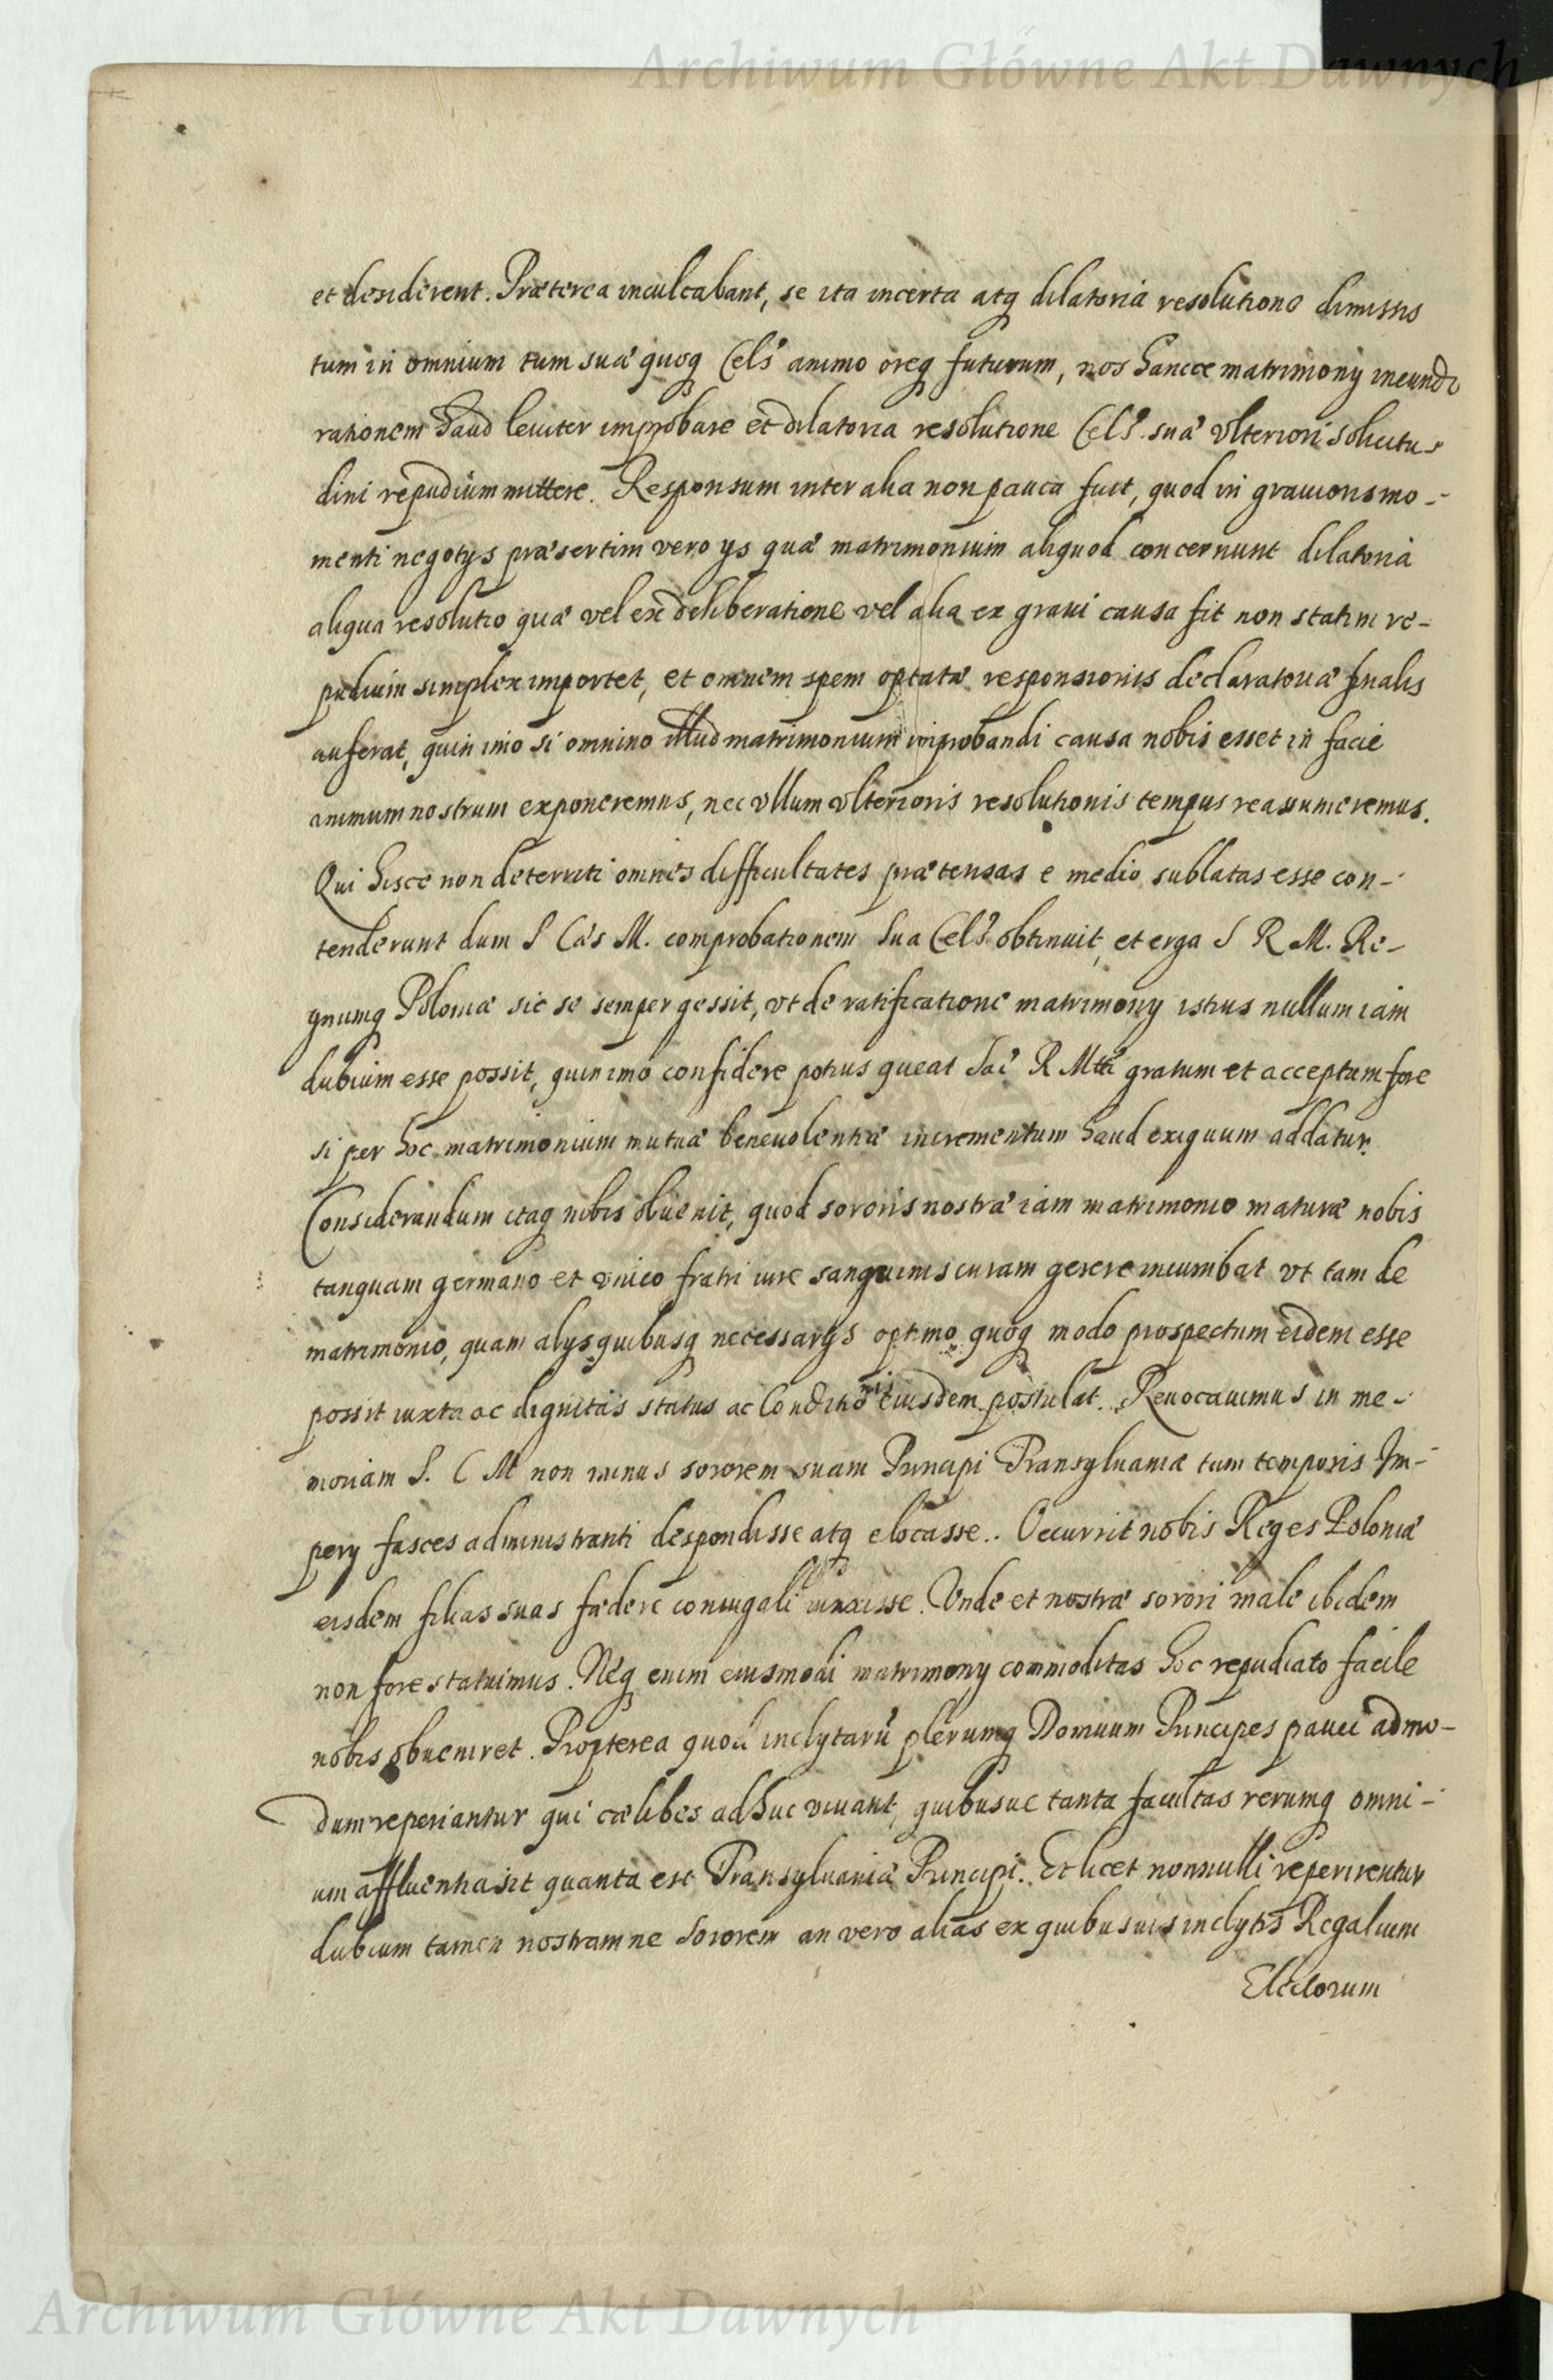 Archiwum Główne Akt Dawnych
et desiderent. Præterea inculcabant, se ita incerta atq dilatoria resolutione dimissis
tum in omnium tum suæ quoq Cels. animo oreq futurum, nos hancce matrimonij ineundi
rationem haud leuiter improbare et dilatoria resolutione Cels. suæ vlteriori solicitu-
dini repudium mittere. Responsum inter alia non pauca fuit, quod in grauioris mo-
menti negotijs præsertim vero ijs quæ matrimonium aliquod concernunt dilatoria
aliqua resolutio quæ vel ex deliberatione vel alia ex graui causa fit non statim re-
pudium simplex importet, et omnem spem optatæ responsionis declaratoriæ finalis
auferat, quin imo si omnino illud matrimonium improbandi causa nobis esset in facie
animum nostrum exponeremus, nec vllum vlterioris resolutionis tempus reassumeremus.
Qui hisce non deterriti omnes difficultates prætensas e medio sublatas esse con-
tenderunt dum S Cæs M. comprobationem Sua Cels. obtinuit, et erga S R M. Re-
gnumq Poloniæ sic se semper gessit, vt de ratificatione matrimonij istius nullum iam
dubium esse possit, quin imo confidere potius queat Sac R Mtti gratum et acceptum fore
si per hoc matrimonium mutuæ beneuolentiæ incrementum haud exiguum addatur.
Considerandum itaq nobis obuenit, quod sororis nostræ iam matrimonio maturæ nobis
tanquam germano et vnico fratri iure sanguinis curam gerere incumbat vt tam de
matrimonio, quam alijs quibusq necessarijs optimo quoq modo prospectum eidem esse
possit iuxta ac dignitas status ac Conditionis eiusdem postulat. Reuocauimus in me-
moriam S. C M non minus sororem suam Principi Transyluaniæ tum temporis Im-
perij fasces administranti despondisse atq elocasse. Occurrit nobis Reges Poloniæ
eisdem filias suas fædere coniugali iunxisse. Vnde et nostræ sorori male ibidem
non fore statuimus. Neq enim eiusmodi matrimonij commoditas hoc repudiato facile
nobis obueniret. Propterea quod inclytarū plerumq Domuum Principes pauci admo-
dum reperiantur qui cælibes adhuc viuant, quibusue tanta facultas rerumq omni-
um affluentia sit quanta est Transyluaniæ Principi. Et licet nonnulli reperirentur
dubium tamen nostramne sororem an vero alias ex quibusuis inclytis Regalium
Electorum
Archiwum Główne Akt Dawnych